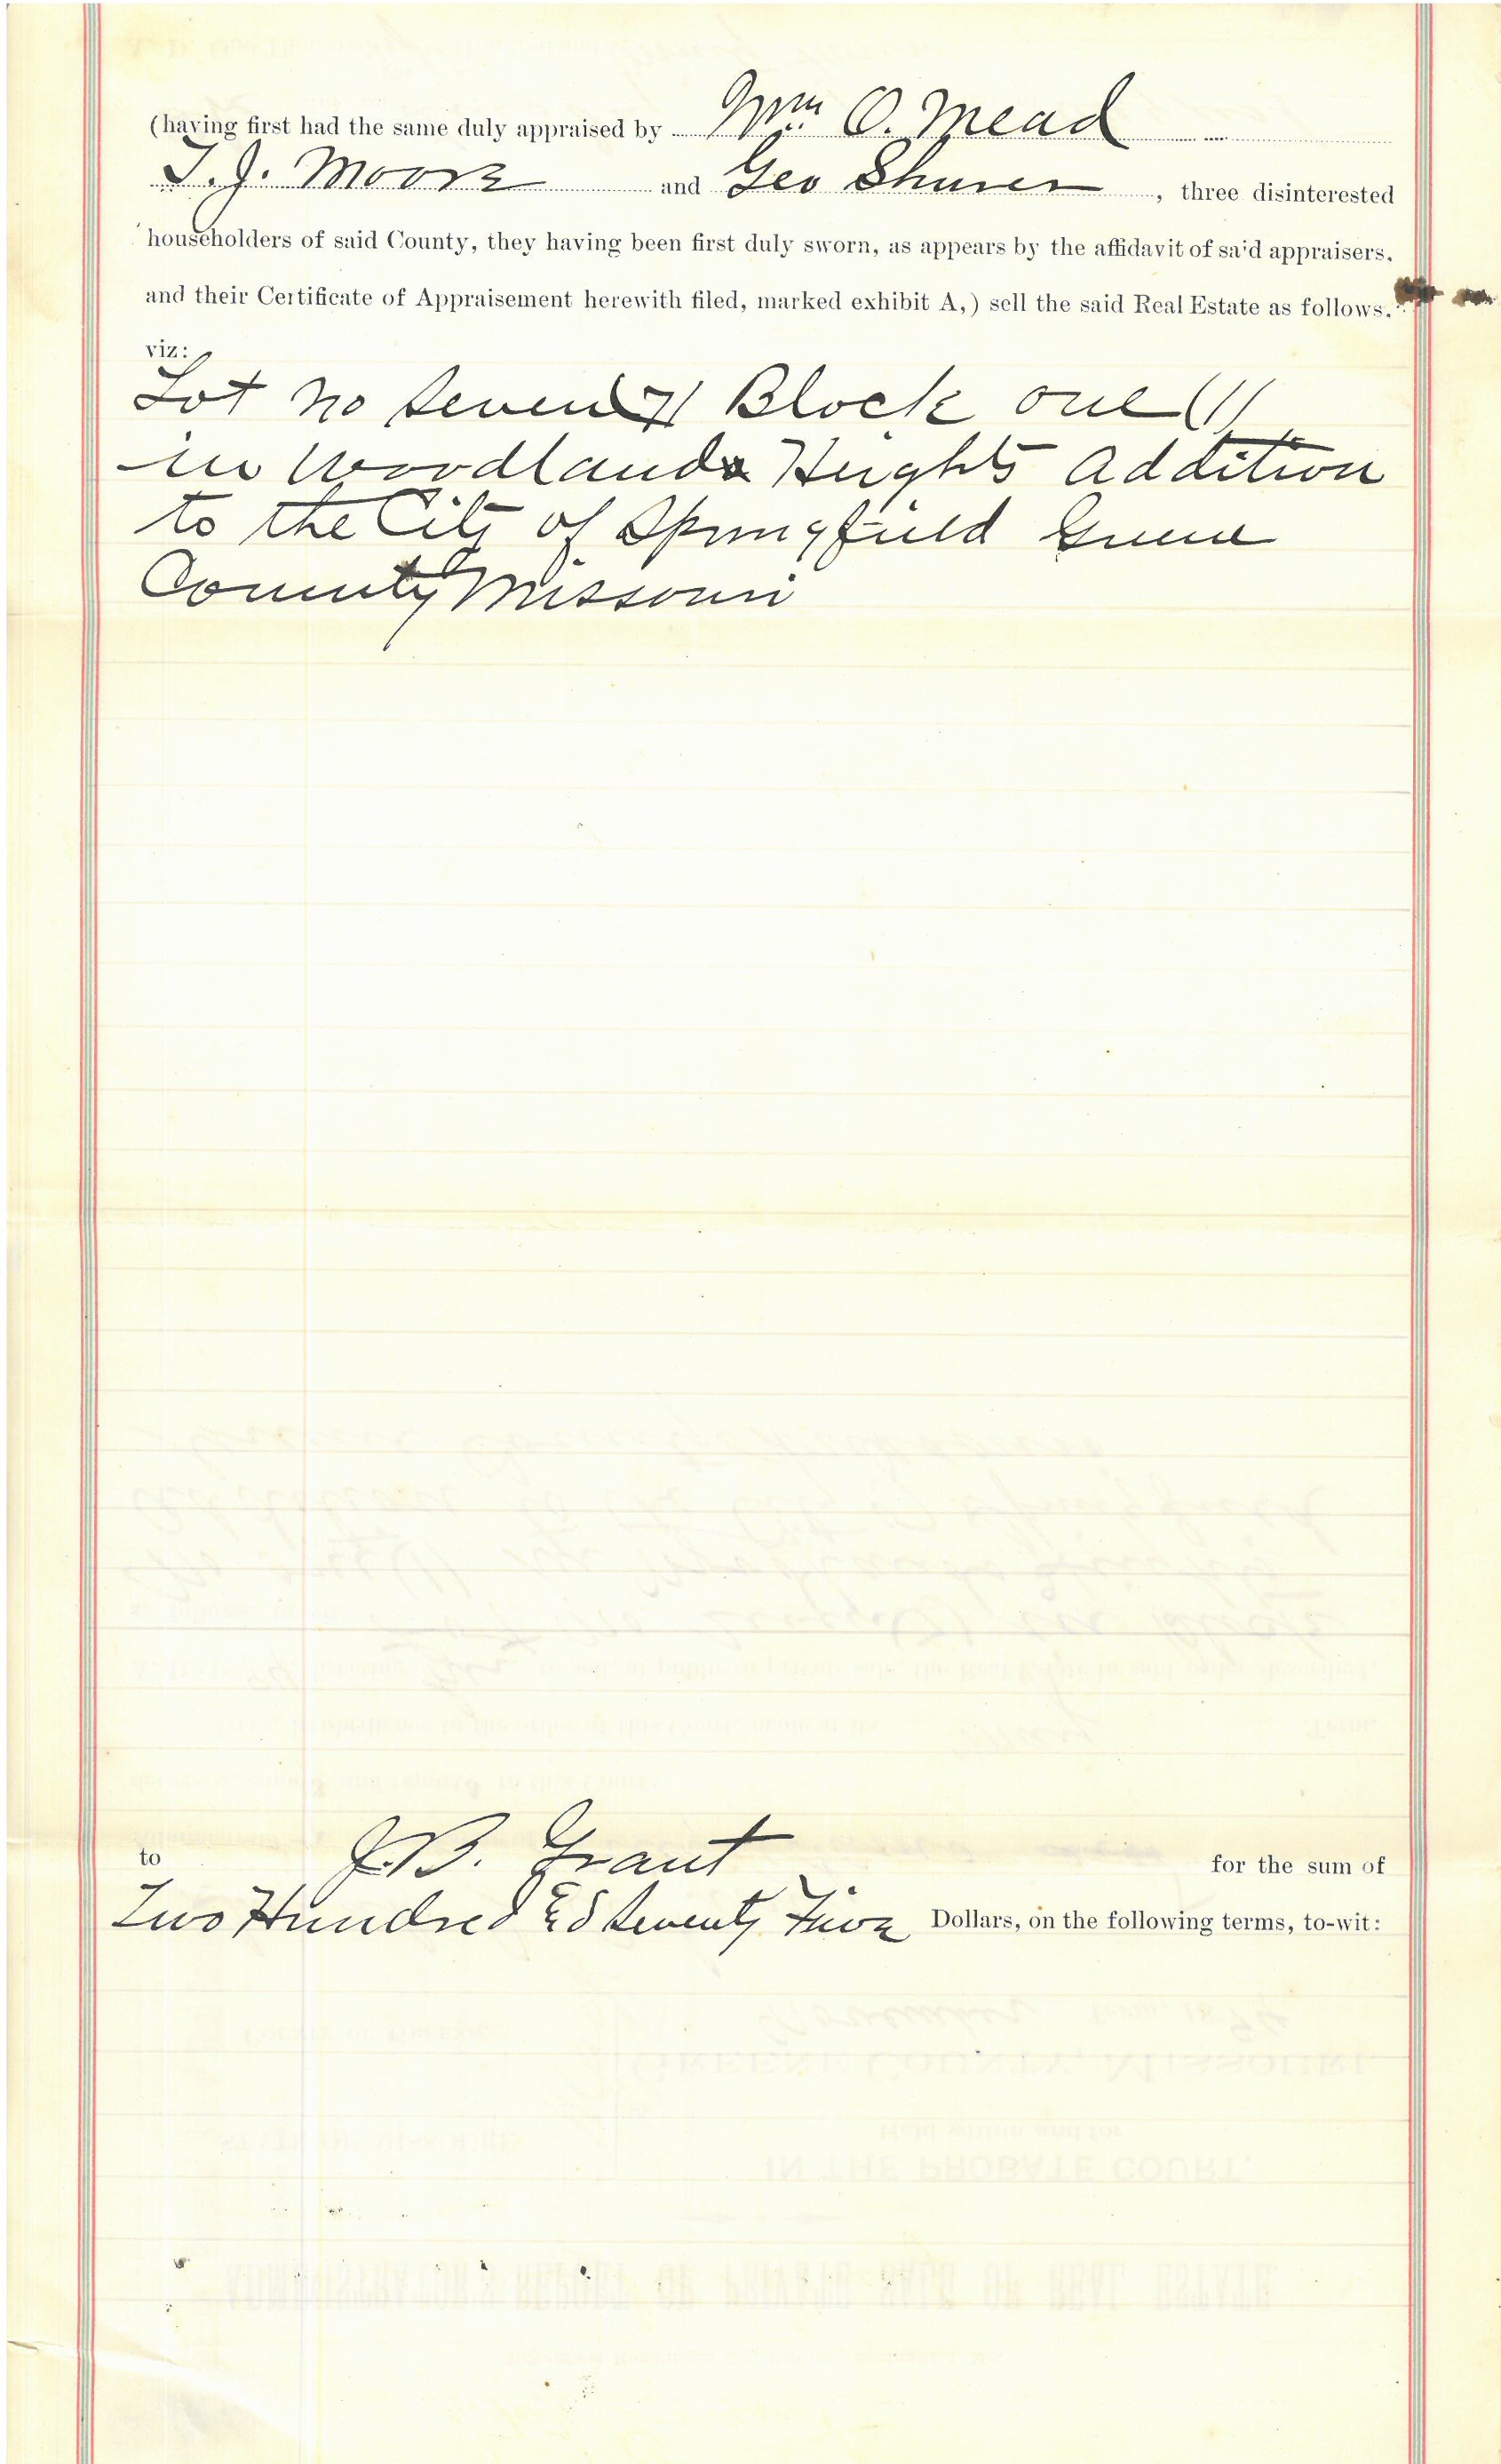 (having first had the same duly appraised by Wm O. Mead
T. J. Moore and Geo Shurer, three disinterested
householders of said County, they having been first duly sworn, as appears by the affidavit of said appraisers.
and their Certificate of Appraisement herewith filed, marked exhibit A,) sell the said Real Estate as follows.
viz:
Lot no seven (7) Block one (1)
in Woodland Heights addition
to the City of Springfield Greene
County Missouri
to J.B. Grant for the sum of
Two Hundred & Seventy Five Dollars, on the following terms, to-wit:
IN THE PROBATE COURT.
Held within and for
GREENE COUNTY, MISSOURI
November Term, 1894